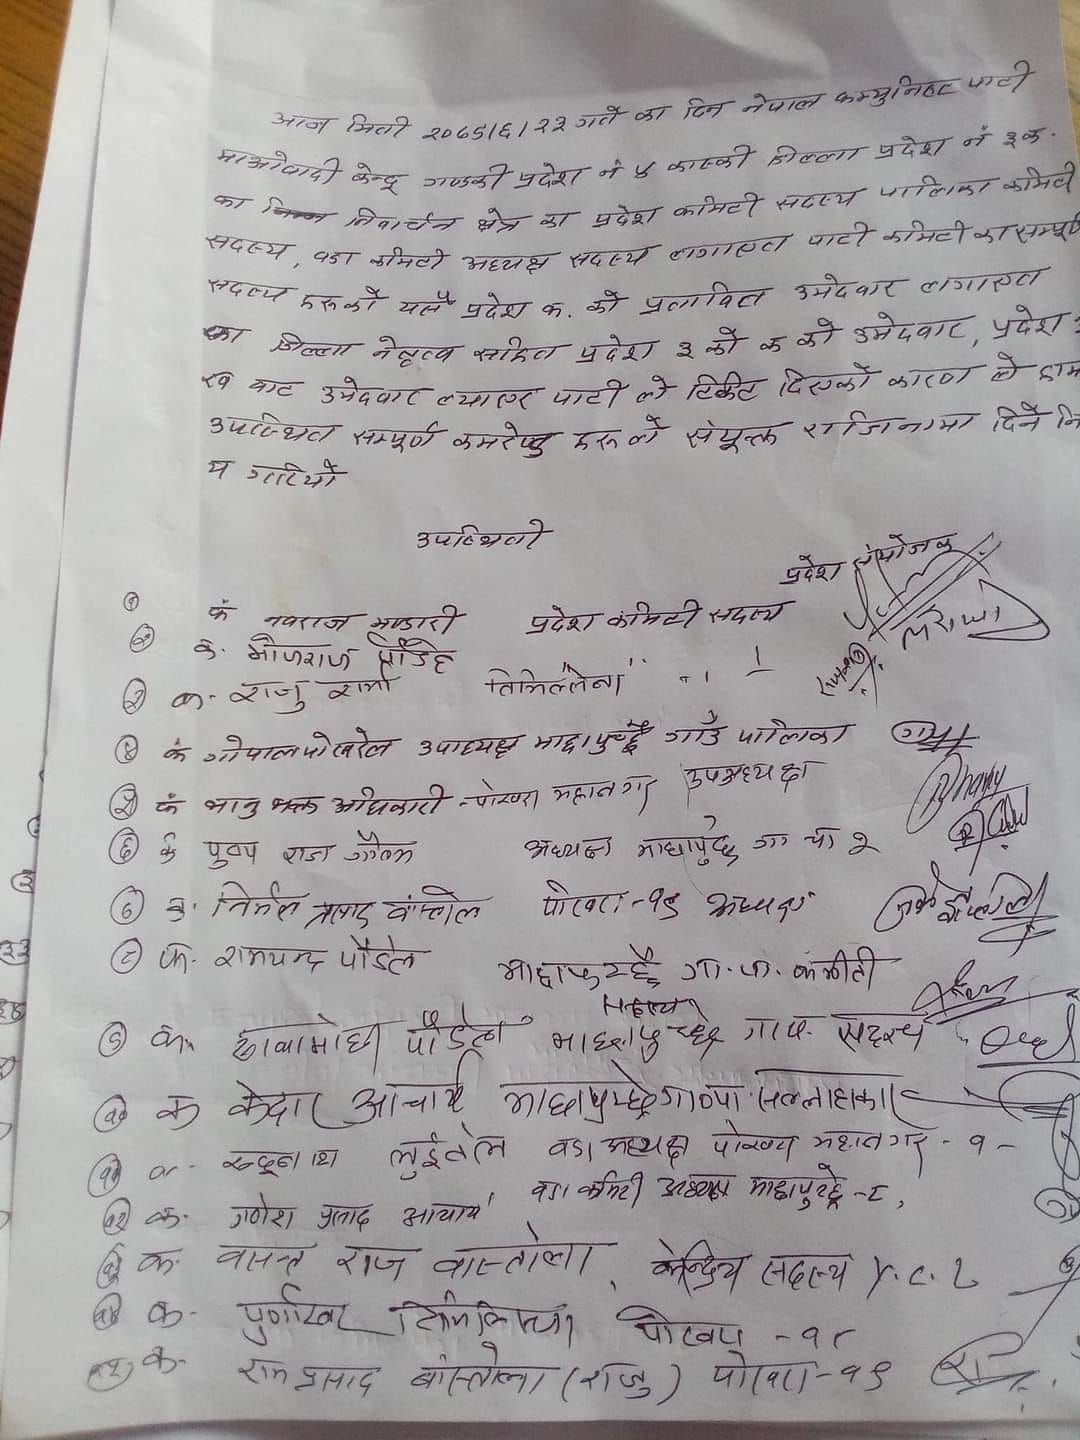 आज मिती २०७४।६।२२ गते का दिन नेपाल कम्युनिष्ट पार्टी
माओवादी केन्द्र गण्डकी प्रदेश नं ४ कास्की जिल्ला प्रदेश नं ३ क.
का निर्वाचन क्षेत्र का प्रदेश कमिटी सदस्य पालिका कमिटी
सदस्य, वडा कमिटी अध्यक्ष सदस्य लगाएत पार्टी कमिटी का सम्पूर्ण
सदस्य हरुको यसै प्रदेश क. को प्रस्तावित उमेदवार लगाएत
का जिल्ला नेतृत्व सहित प्रदेश ३ को क को उमेदवार, प्रदेश
ख बाट उमेदवार ल्याएर पार्टी ले टिकट दिएको कारण ले हाम
उपस्थित सम्पूर्ण कमरेड हरु ले संयुक्त राजिनामा दिने नि
य गरियो
उपस्थिती
प्रदेश संयोजक
१ कं नवराज भण्डारी प्रदेश कमिटी सदस्य
२ क. मोजराज पौडेल
३ क. राजु शर्मा तिमिल्सेना
४ कं गोपाल पोखरेल उपाध्यक्ष माछापुच्छ्रे गाउँ पालिका
५ कं भानु भक्त अधिकारी - पोखरा महानगर उपाध्यक्ष
६ क पुण्य राज गौतम अध्यक्ष माछापुच्छ्रे गा पा २
७ क. निर्मल प्रसाद बाँस्तोला पोखरा -१९ अध्यक्ष
८ क. रामचन्द्र पौडेल माछापुच्छ्रे गा. पा. कमीटी
सदस्य
९ क. पौडेल माछापुच्छ्रे गापा सदस्य
१० क केदार आचार्य माछापुच्छ्रे गा०पा सल्लाहकार
११ क. लुईटेल वडा अध्यक्ष पोखरा महानगर - १
१२ क. गणेश प्रसाद आचार्य वडा कमिटी अध्यक्ष माछापुच्छ्रे -८,
१३ क. वसन्त राज बास्तोला, केन्द्रिय सदस्य Y.C.L
१४ क. तिमिल्सिना पोखरा -१८
१५ क. राम प्रसाद बाँस्तोला (राजु) पोखरा-१९